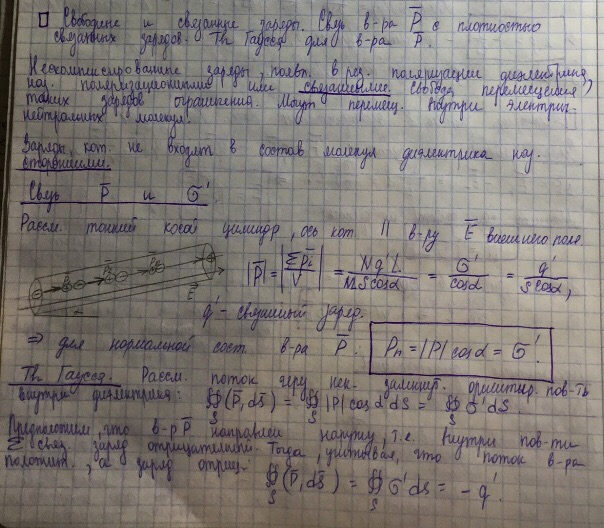 Свободные и связанные заряды. Связь в-ра P̅ с плотностью
связанных зарядов. Th Гаусса для в-ра P̅.
Нескомпенсированные заряды, появл. в рез. поляризации диэлектрика,
наз. поляризационными или связанными. Свобода перемещения
таких зарядов ограничена. Могут перемещ. внутри электрич.
нейтральных молекул.
Заряды, кот. не входят в состав молекул диэлектрика наз.
сторонними.
Связь P̅ и σ'.
Рассм. тонкий косой цилиндр, ось кот. || в-ру E̅ внешнего поля
|P̅| = |Σp̅i / V| = Nq'L / NLScosα = σ' / cosα = q' / Scosα,
E̅
q' - связанный заряд.
⇒ для нормальной сост. в-ра P̅. Pn = |P| cosα = σ'.
Th Гаусса. Рассм. поток через нек. замкнут. ориентир. пов-ть
внутри диэлектрика: ∯S (P̅, dS̅) = ∯S |P| cosα dS = ∯S σ' dS
Предположим, что в-р P̅ направлен наружу, т.е. внутри пов-ти
Σ связ. заряд отрицательный. Тогда, учитывая, что поток в-ра
положит., а заряд отриц. ∯S (P̅, dS̅) = ∯S σ' dS = -q'.